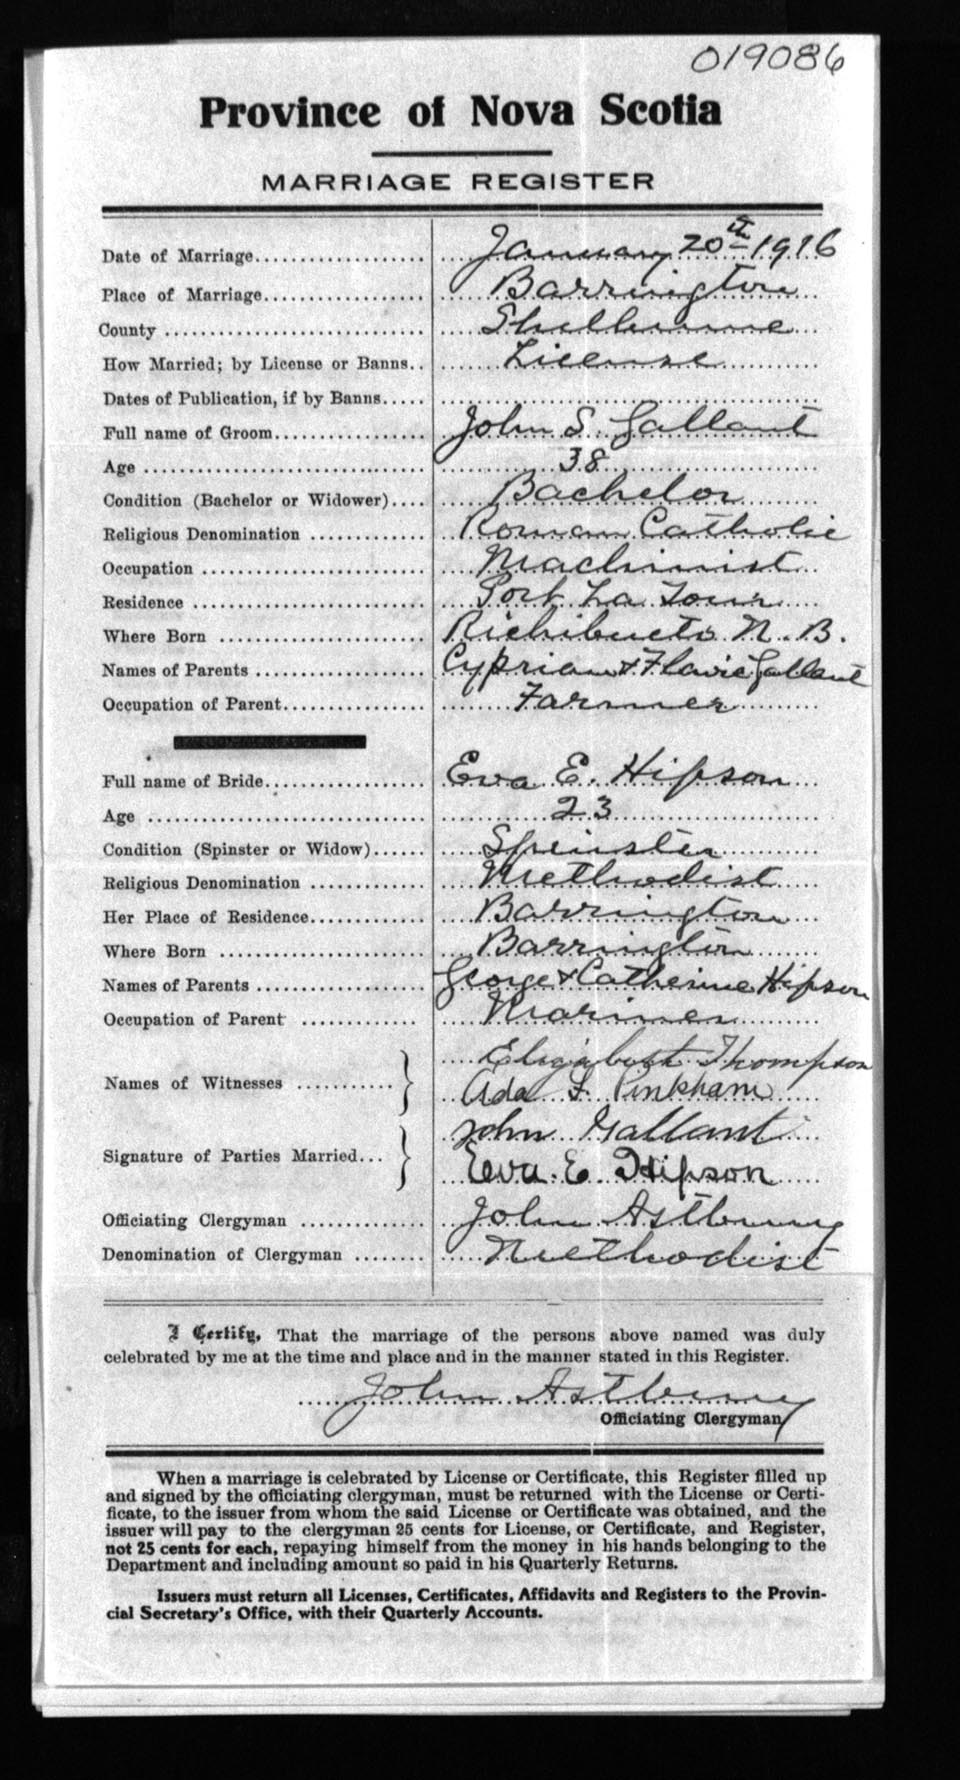 019086
Province of Nova Scotia
MARRIAGE REGISTER
Date of Marriage.................... January 20th 1916
Place of Marriage................... Barrington
County ............................. Shelburne
How Married; by License or Banns.. License
Dates of Publication, if by Banns.....
Full name of Groom.................. John S. Gallant
Age ................................ 38
Condition (Bachelor or Widower).... Bachelor
Religious Denomination ............. Roman Catholic
Occupation ......................... Machinist
Residence .......................... Port La Tour
Where Born ......................... Richibucto N. B.
Names of Parents ................... Cyprian & Flavie Gallant
Occupation of Parent................ Farmer
Full name of Bride.................. Eva E. Hipson
Age ................................ 23
Condition (Spinster or Widow)...... Spinster
Religious Denomination ............. Methodist
Her Place of Residence............. Barrington
Where Born ......................... Barrington
Names of Parents ................... George & Catherine Hipson
Occupation of Parent ............. Mariner
Elizabeth Thompson
Names of Witnesses ...........
Ada F. Pinkham
John Gallant
Signature of Parties Married...
Eva. E. Hipson
Officiating Clergyman .............. John Astbury
Denomination of Clergyman ........ Methodist
I Certify, That the marriage of the persons above named was duly
celebrated by me at the time and place and in the manner stated in this Register.
John Astbury
Officiating Clergyman
When a marriage is celebrated by License or Certificate, this Register filled up
and signed by the officiating clergyman, must be returned with the License or Certi-
ficate, to the issuer from whom the said License or Certificate was obtained, and the
issuer will pay to the clergyman 25 cents for License, or Certificate, and Register,
not 25 cents for each, repaying himself from the money in his hands belonging to the
Department and including amount so paid in his Quarterly Returns.
Issuers must return all Licenses, Certificates, Affidavits and Registers to the Provin-
cial Secretary's Office, with their Quarterly Accounts.